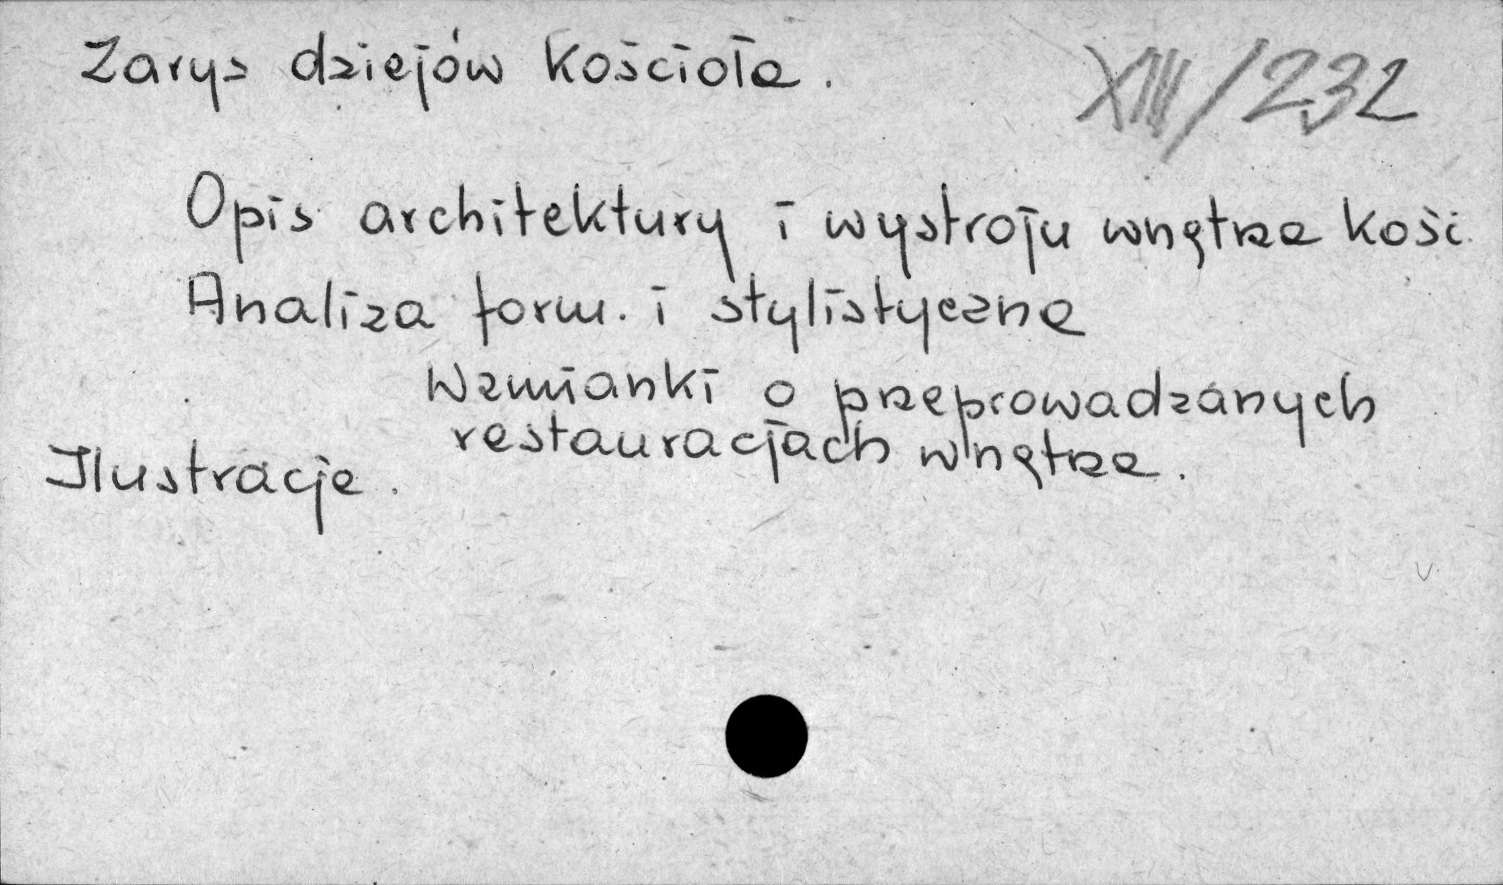 Zarys dziejów kościoła.
XIII/232
Opis architektury i wystroju wnętrza kość.
Analiza form. i stylistyczna
Wzmianki o przeprowadzanych
restauracjach wnętrza.
Ilustracje.